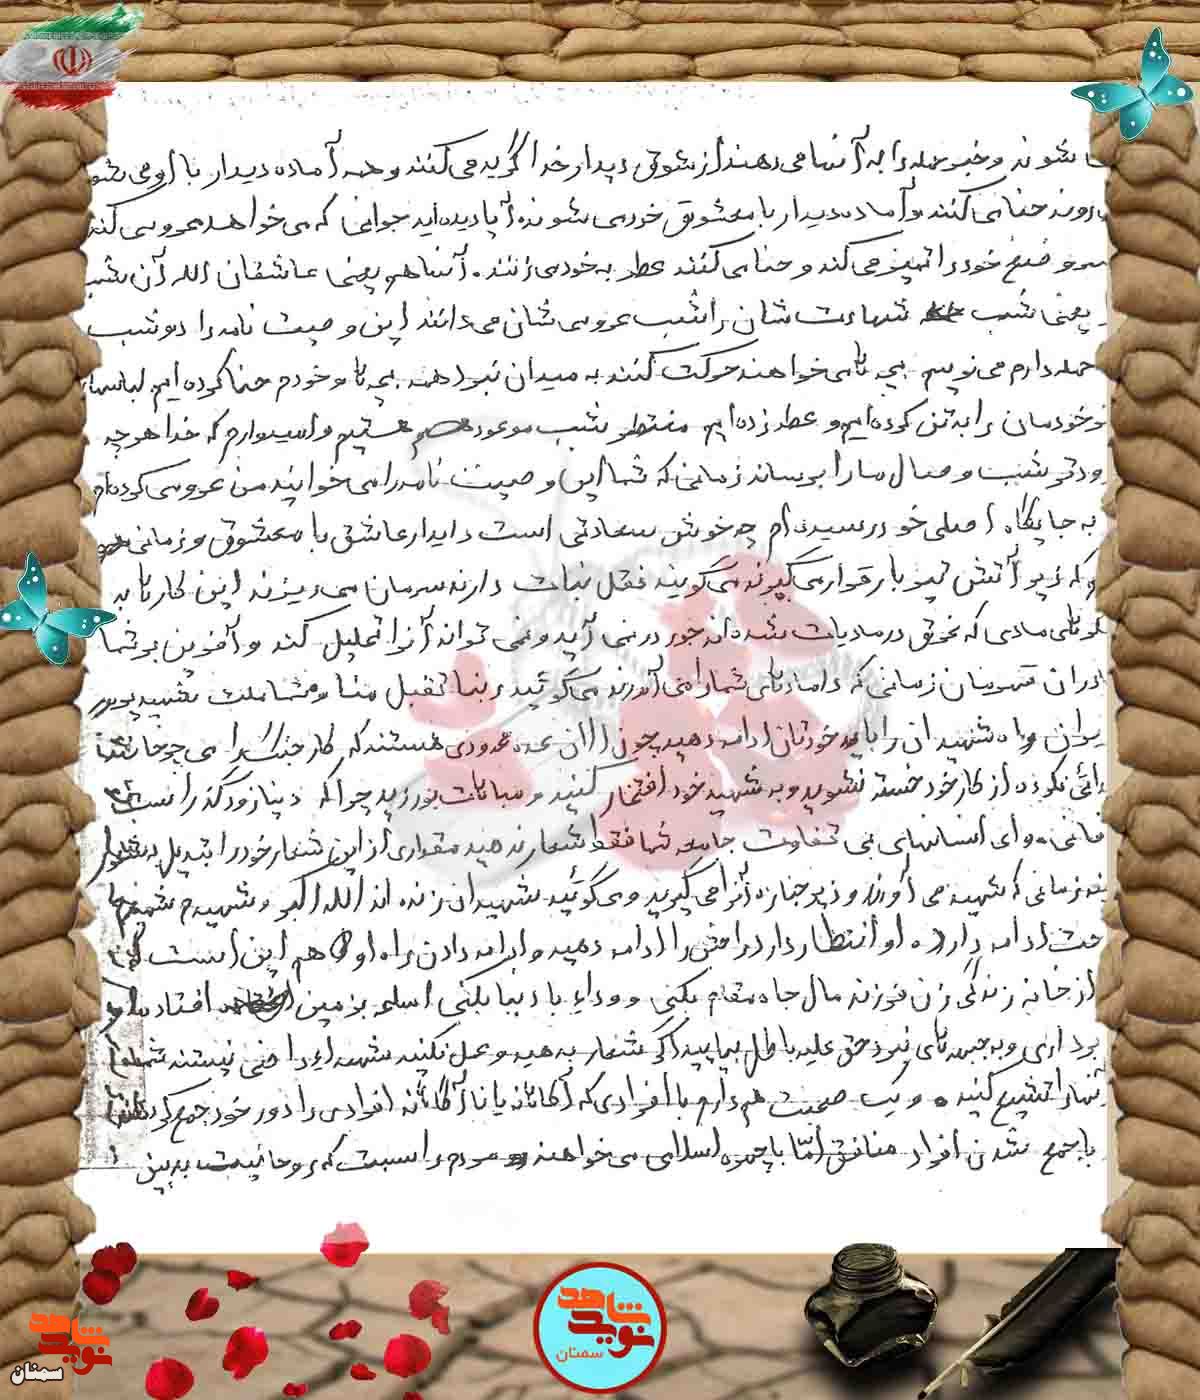 شوند و خبر حمله را به آنها می دهند از شوق دیدار خدا گریه می کنند و همه آماده دیدار با او می شو
روند حنا می کنند و آماده دیدار با معشوق خود می شوند آیا دیده اید جوانی که می خواهد عروسی کند
سر و وضع خود را تمیز می کند و حنا می کنند عطر به خود می زنند. آنها هم یعنی عاشقان الله آن شب
یعنی شب شهادت شان را شب عروسی شان می دانند این وصیت نامه را دو شب
حمله دارم می نویسم بچه های خواهند حرکت کنند به میدان نبرد همه بچه ها و خودم حنا کرده ایم لباسهای
خودمان را به تن کرده ایم و عطر زده ایم منتظر شب موعود هستیم و امیدوارم که خدا هر چه
ودتر شب وصال ما را برساند زمانی که شما این وصیت نامه را می خوانید من عروسی کرده ام
به جایگاه اصلی خود رسیده ام چه خوش سعادتی است دیدار عاشق با معشوق و زمانی
که زیر آتش تیربار قرار می گیرند می گویند نقل نبات دارند سرمان می ریزند این کارها به
های مادی که غرق در مادیات شده اند جور در نمی آید و نمی تواند آنرا تحلیل کند و آفرین بر شما
ادران قهرمان زمانی که دامادهای شما را می آورند می گوئید ربنا تقبل منا و شما ملت شهید پرور
یران راه شهیدان را باید خودتان ادامه دهید چون الان عده محدودی هستند که کار جنگ را می چرخانند
از کار خود خسته نشوید و به شهید خود افتخار کنید و مباهات بورزید چرا که دنیا زودگذر است
فانی. و ای انسانهای بی تفاوت جامعه شما فقط شعار ندهید مقداری از این شعار خود را تبدیل به شعور
زمانی که شهید می آورند و زیر جنازه آنرا می گیرید و می گوئید شهیدان زنده اند الله اکبر و شهیدم
ادامه دارد او انتظار دارد راهش را ادامه دهید و ادامه دادن راه او هم این است که
از خانه زندگی زن فرزند مال جاه مقام بکنی و وداع با دنیا بکنی اسلحه بر زمین افتاده او
برداری و به جبهه های نبرد حق علیه باطل بیایید اگر شعار بدهید و عمل نکنید شهداء راضی نیستند شما
آنها را تشییع کنید. و یک صحبت هم دارم با افرادی که آگاهانه یا ناآگاهانه افرادی را دور خود جمع کرده
با جمع شدن افراد منافق اما با چهره اسلامی می خواهند مردم را نسبت به روحانیت بدبین
شاهد
نوید
سمنان
شاهد
نوید
سمنان